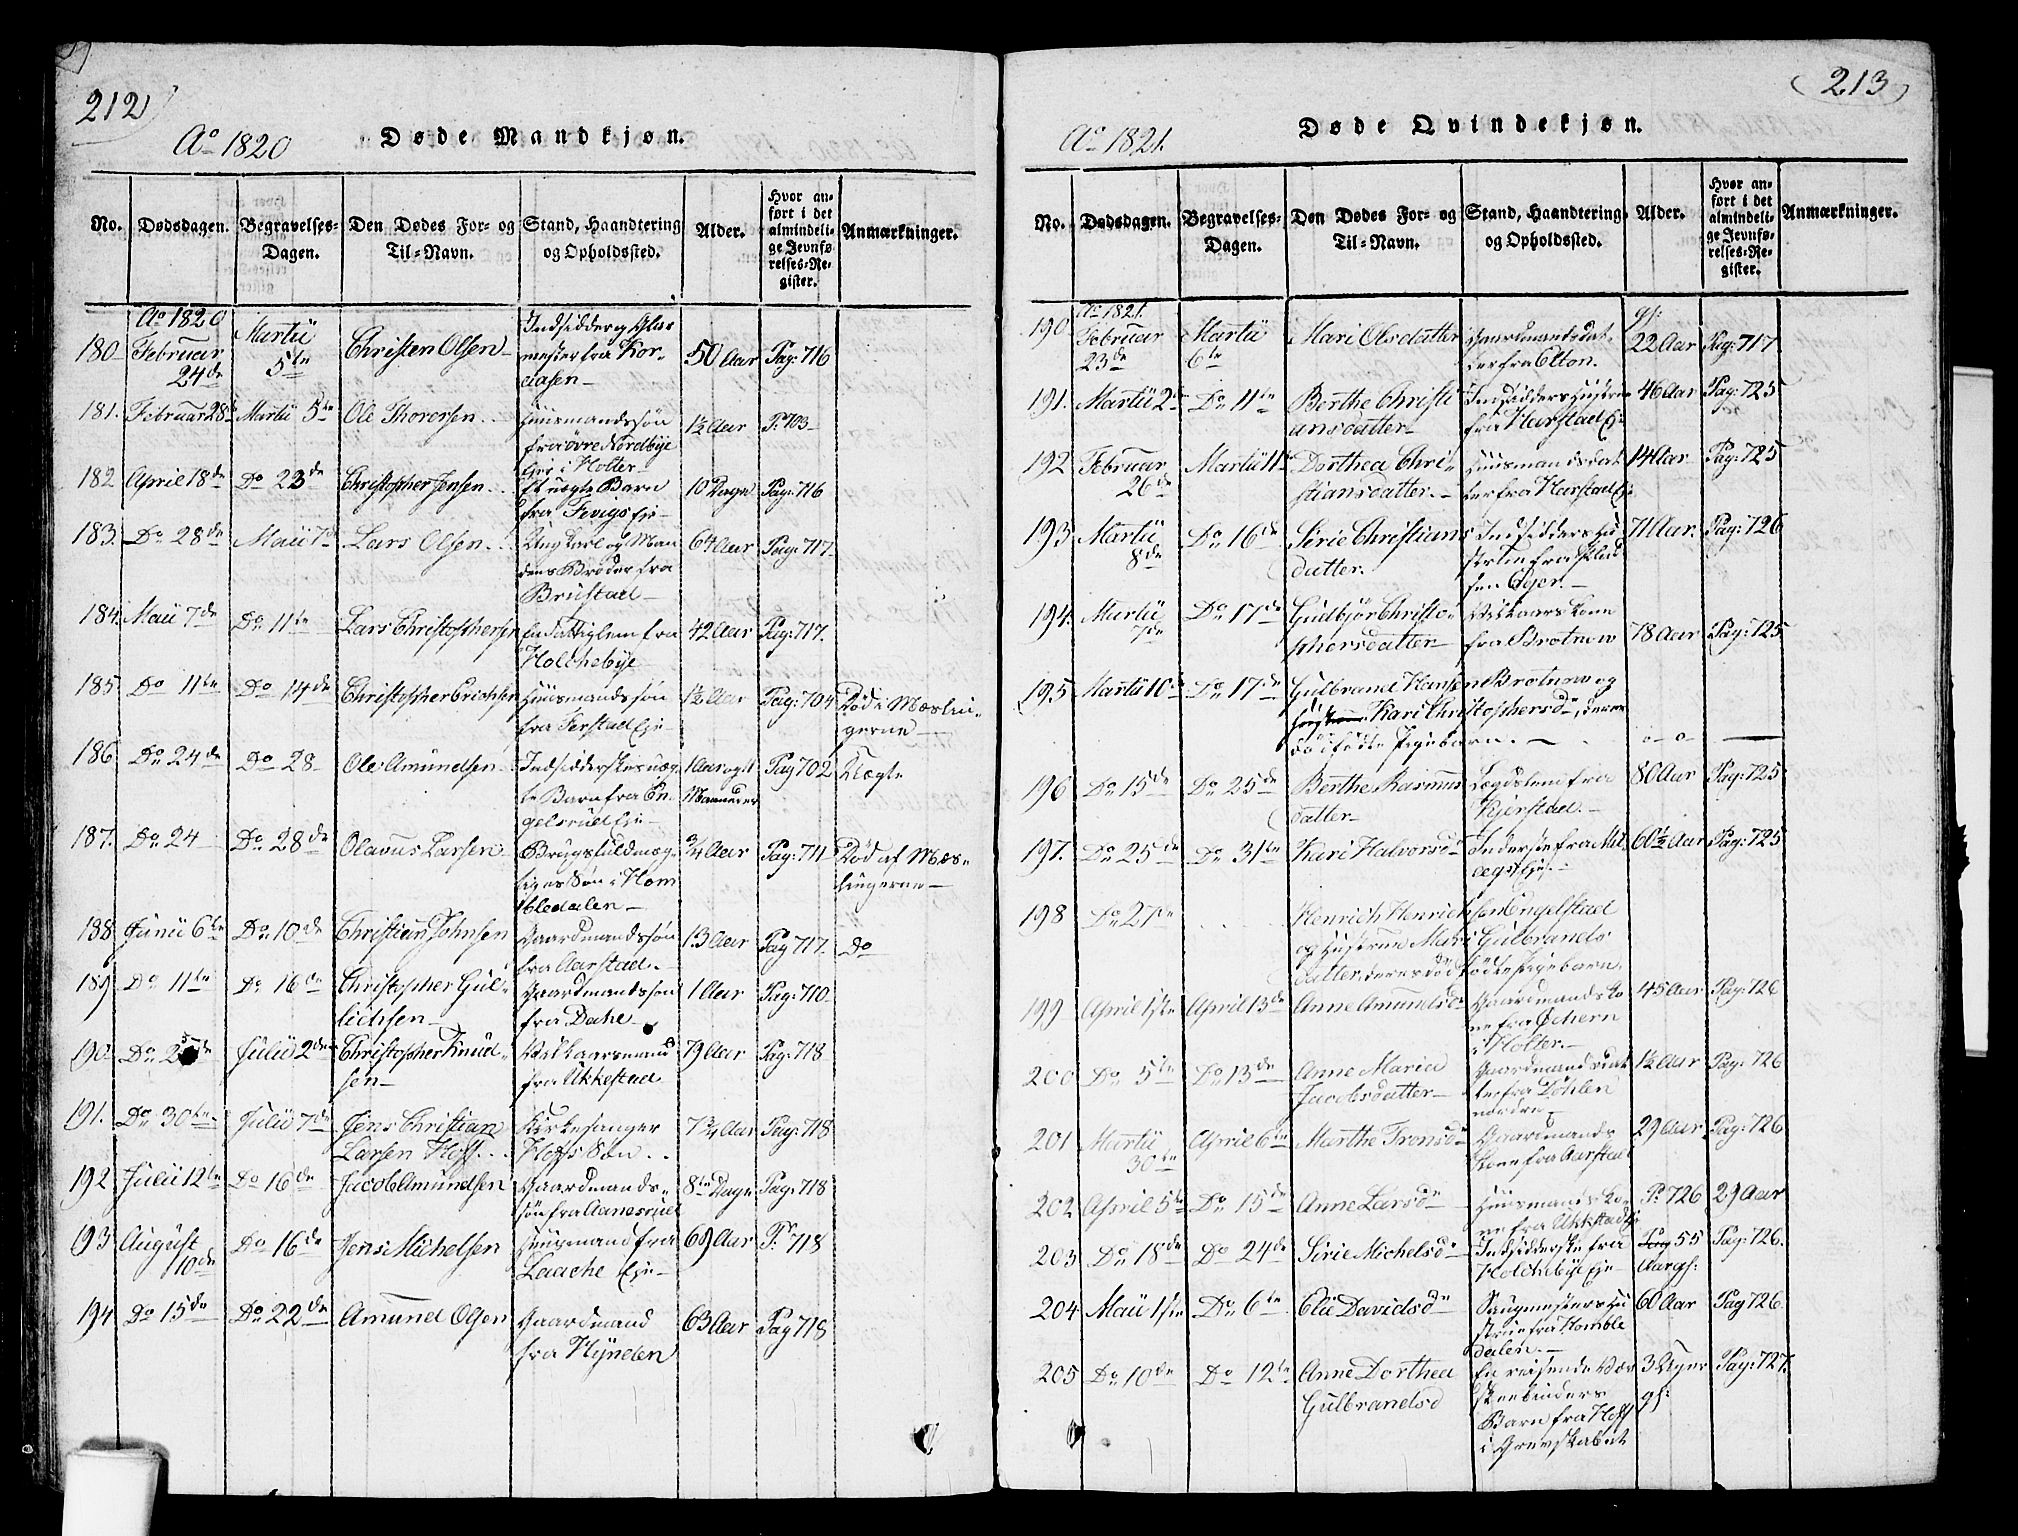 212
Ao 1820
Døde Mandkjøn.
No. Dødsdagen. Begravelses-Dagen. Den Dødes For- og Til-Navn. Stand, Haandtering og Opholdssted. Alder. Hvor anført i det almindelige Jevnførelses-Register. Anmærkninger.
180 Ao 1820 Februar 24de Martii 5te Christen Olsen Indsidder og Glarmester fra 50 Aar Pag: 716
181. Februar 28de Martii 5te Ole Thorersen Huusmandssøn fra øvre Nordbye Eje i Holter 1½ Aar P: 703
182 April 18de Do 23de Christopher Jensen Et uægte Barn fra Fevigs Eje 10 Dage Pag: 716
183. Do 28de Maii 7de Lars Olsen Ungkarl og Mandens Broder fra Brustad 64 Aar Pag: 717
184. Maii 7de Do 11te Lars Christophersen En Fattiglem fra Holchebye 42 Aar Pag: 717.
185 Do 11te Do 14de Christopher Erichsen Huusmandssøn fra Ferstad Eje 1½ Aar Pag: 704 Død i Mæslingerne
186 Do 24de Do 28 Ole Amundsen Indsidderskes uægte Barn fra Engelsrud Eje 1 Aar og Maaneder Pag 702 Uægte
187. Do 24 Do 28de Olavus Larsen Brugsfuldmægtiges Søn i Hombledalen ¾ Aar Pag: 711 Død af Mæslingerne
188 Junii 6te Do 10de Christian Johnsen Gaardmandssøn fra Aarstad 13 Aar Pag 717. Do
189 Do 11te Do 16de Christopher Gulichsen Gaardmandssøn fra Dahe 1 Aar Pag: 710
190. Do 25de Julii 2de Christopher Knudsen Vilkaarsmand fra Ukkestad 79 Aar Pag: 718
191. Do 30te Julii 7de Jens Christian Larsen Hoff Kirkesanger Hoffs Søn 7¾ Aar Pag: 718
192 Julii 12te Do 16de Jacob Amundsen Gaardmandssøn fra Aanesrud 8te Dage Pag: 718
193 August 10de Do 16de Jens Michelsen Huusmand fra Laache Eje 69 Aar P: 718
194 Do 15de Do 22de Amund Olsen Gaardmand fra Hynden 63 Aar Pag 718
213
Ao 1821.
Døde Qvindekjøn.
No. Dødsdagen. Begravelses-Dagen. Den Dødes For- og Til-Navn. Stand, Haandtering og Opholdssted. Alder. Hvor anført i det almindelige Jevnførelses-Register. Anmærkninger.
190 Ao 1821. Februar 23de Martii 6te Mari Olsdatter Gaardmandsdatter fra Elton. gl: 22 Aar Pag: 717
191. Martii 2de Do 11te Berthe Christiansdatter Indsidders Hustrue fra Harstad Eje 46 Aar Pag: 725
192 Februar 26de Martii 11te Dorthea Christiansdatter Huusmandsdatter fra Harstad Eje 14 Aar Pag: 725
193 Martii 8de Do 16de Sirie Christiansdatter Indsidders Hustrue fra Eyer. 71 Aar. Pag: 726
194. Martii 7de Do 17de Gulbjør Christophersdatter Vilkaarskone fra Brotnow 78 Aar Pag: 725
195 Martii 10de Do 17de Gulbrand Hansen Brotnow og Hustrue Kari Christophersd:, deres dødfødte Pigebarn.
196 Do 15de Do 25de Berthe Rasmusdatter Lægdslem fra Kjerstad. 80 Aar Pag: 725
197. Do 25de Do 31te Kari Halvorsd: Inderste fra Eje. 60½ Aar Pag: 725
198 Do 27de Henrich Henrichsen Engelstad og Hustrue Mari Gulbrandsdatter, deres dødfødte Pigebarn.
199 April 1ste April 13de Anne Amundsd: Gaardmandskone fra Ochern i Holter. 45 Aar Pag: 726
200 Do 5te Do 13de Anne Maria Jacobsdatter Gaardmandsdatter fra Løhlen nordre 1½ Aar Pag: 726
201 Martii 30te April 6te Marthe Tronsd: Gaardmands Kone fra Aarstad 29 Aar Pag: 726
202 April 5te Do 15de Anne Larsd: Huusmandskone fra Ukkstad Eje P: 726 29 Aar
203 Do 18de Do 24de Sirie Michelsd: Indsidderske fra Holchebye Eje 55 Aar gl: Pag: 726.
204 Maii 1ste Do 6te Elie Davidsd: Saugmesters Hustrue fra Hombledalen. 60 Aar Pag 726.
205 Do 10de Do 12te Anne Dorthea Gulbrandsd En reisende Barn fra Hoff i Grevskabet 3 Uger gl: Pag: 727.